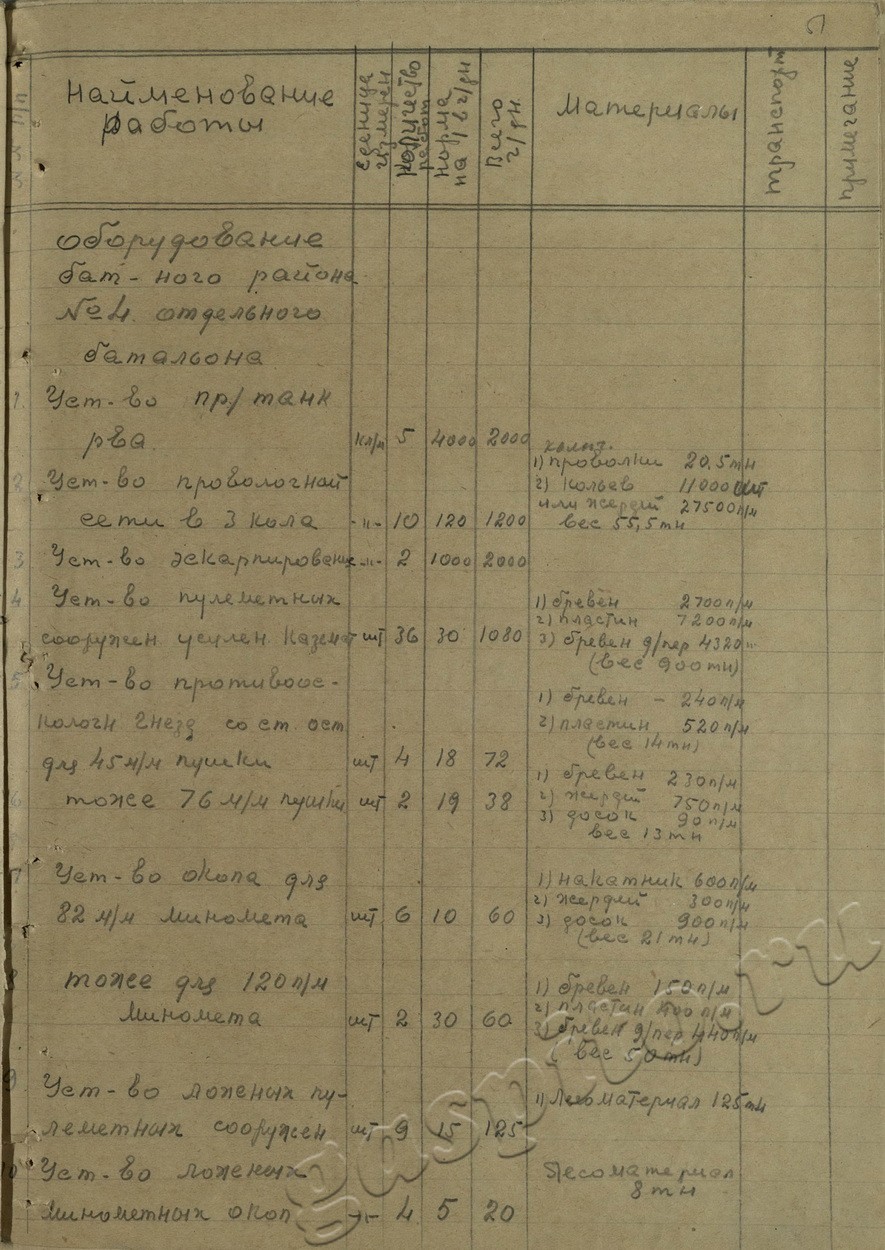 № п/п
Наименование работы
Еденица измерен
Количество работ
Норма на 1 в ч/дн
Всего ч/дн.
Материалы
Транспорт
Примечание
Оборудование
бат-ного района
№ 4 отдельного
батальона
1. Уст-во пр/танк
рва. кл/м 5 4000 2000
2 Уст-во проволочной
сети в 3 кола -"- 10 120 1200
1) проволки 20,5 тн
2) Кольев 11000 шт
или жердей 27500 п/м
вес 55,5 тн
3 Уст-во эскарпирован -"- 2 1000 2000
4 Уст-во пулеметных
сооружен усилен Казем шт 36 30 1080
1) бревен 2700 п/м
2) пластин 7200 п/м
3) бревен д/пер 4320 "
(вес 900 тн)
5 Уст-во противоос-
колочн гнезд со ст. ост
для 45 м/м пушки шт 4 18 72
1) бревен - 240 п/м
2) пластин 520 п/м
(вес 14 тн)
6 тоже 76 м/м пушки шт 2 19 38
1) бревен 230 п/м
2) жердей 750 п/м
3) досок 90 п/м
вес 13 тн
7 Уст-во окопа для
82 м/м миномета шт 6 10 60
1) накатник 600 п/м
2) жердей 300 п/м
3) досок 900 п/м
(вес 21 тн)
8 тоже для 120 п/м
миномета шт 2 30 60
1) бревен 150 п/м
2) пластин 400 п/м
3) бревен д/пер 440 п/м
(вес 50 тн)
9 Уст-во ложеных пу-
леметных сооружен шт 9 15 125
1) Лесоматериал 125 тн
10 Уст-во ложеных
минометных окоп -"- 4 5 20
Лесоматериал
8 тн
gaspiko.ru